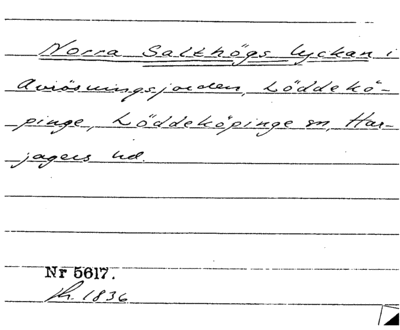 Norra Salthögs lyckan i
Avrösningsjorden, Löddekö-
pinge, Löddeköpinge sn, Har-
jagers hd.
Nr 5617.
1836